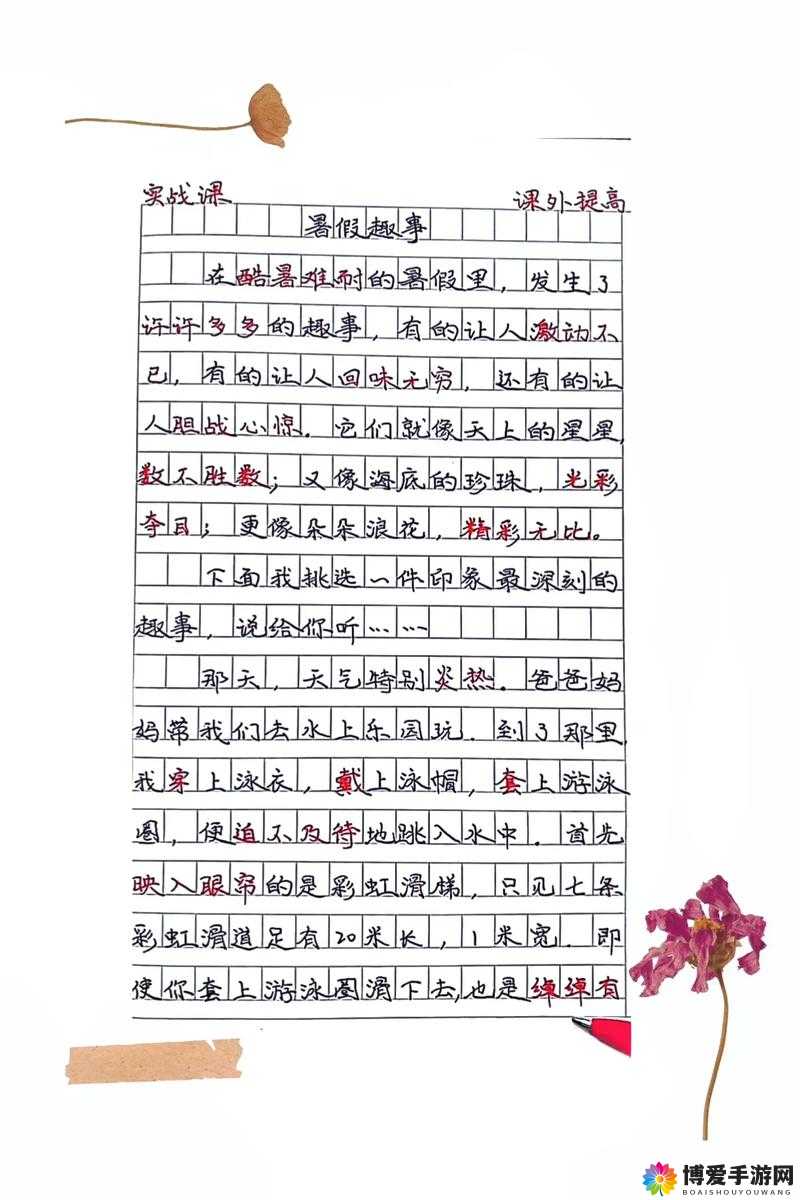 实战课 课外提高
暑假趣事
在酷暑难耐的暑假里，发生了
许许多多的趣事，有的让人激动不
已，有的让人回味无穷，还有的让
人胆战心惊．它们就像天上的星星，
数不胜数；又像海底的珍珠，光彩
夺目；更像朵朵浪花，精彩无比。
下面我挑选一件印象最深刻的
趣事，说给你听……
那天，天气特别炎热．爸爸妈
妈带我们去水上乐园玩．到了那里，
我穿上泳衣，戴上泳帽，套上游泳
圈，便迫不及待地跳入水中．首先
映入眼帘的是彩虹滑梯，只见七条
彩虹滑道足有20米长，1米宽．即
使你套上游泳圈滑下去，也是绰绰有
博爱手游网
BOAISHOUYOUWANG